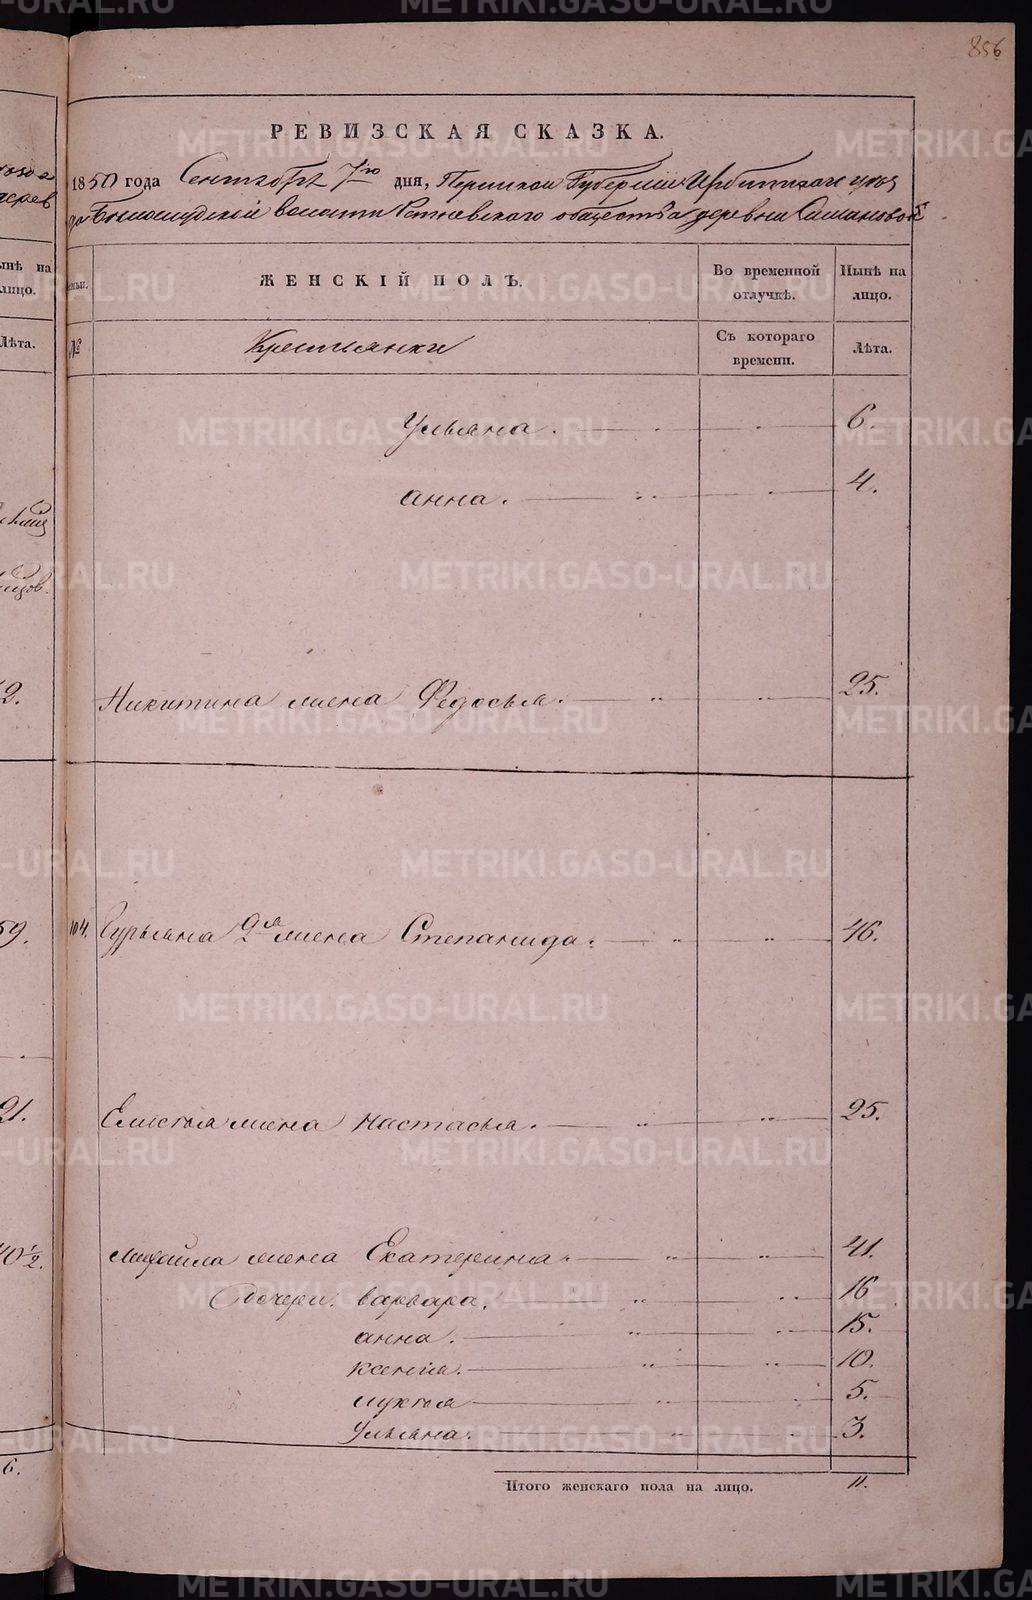 856
РЕВИЗСКАЯ СКАЗКА.
1850 года Сентября 7го дня, Пермской Губернии Ирбитскаго уѣз
да Белослудской волости обществ деревни
ЖЕНСКІЙ ПОЛЪ.
Во временной отлучкѣ.
Нынѣ на лицо.
№
Крестьянки
Съ котораго времени.
Лѣта.
Ульяна. 6.
анна. 4.
Никитина жена Федосья. 25.
104. Гурьяна 2я жена Степанида. 46.
жена настасья. 25.
михайла жена Екатерина. 41.
дочери: варвара. 16
анна. 15.
ксенія. 10.
лукія 5.
Ульяна. 3.
Итого женскаго пола на лицо. 11.
ынѣ на
лицо.
Лѣта.
59.
21.
40½.
6.
METRIKI.GASO-URAL.RU